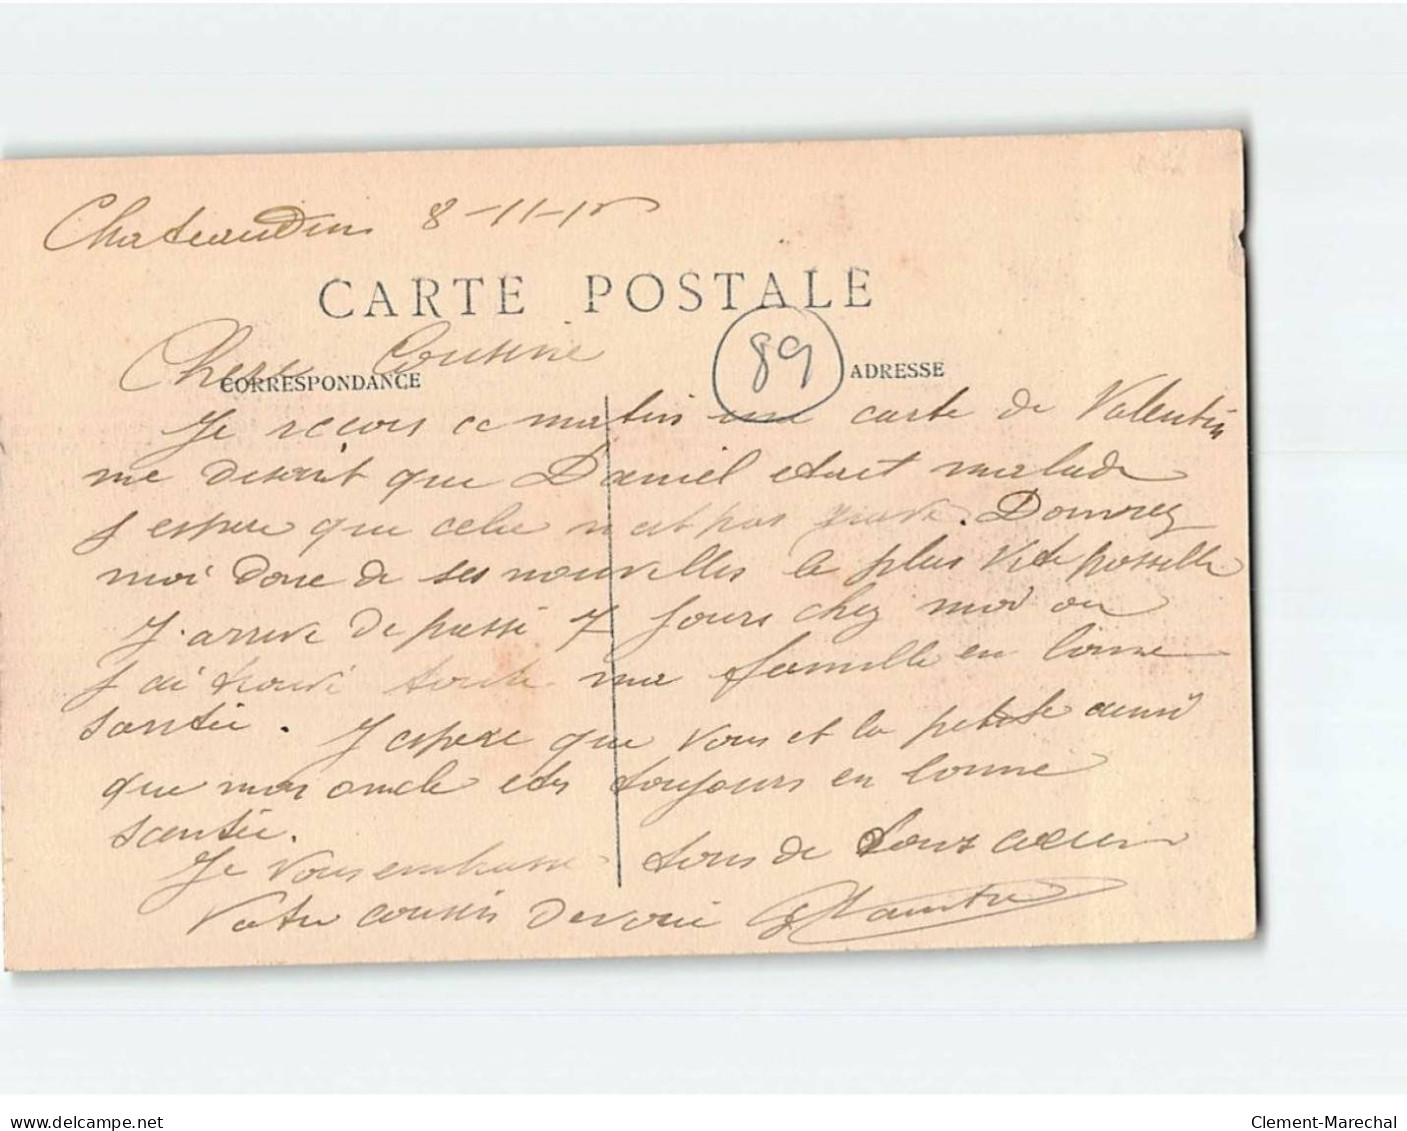 Chateaudun 8-11-15
CARTE POSTALE
Chere Cousine
89
CORRESPONDANCE
ADRESSE
Je recois ce matin une carte de Valentin
me desant que Daniel etait malade
J espere que cela n est pas grave. Donnez
moi donc de ses nouvelles le plus vite possible
J. arrive de passé 7 jours chez moi ou
J ai trouvé toute ma famille en bonne
santée. J espere que vous et la petite aussi
que mon oncle etes toujours en bonne
santée.
Je vous embrasse tous de tout coeur
Votre cousin devoué
delcampe.net
Clement-Marechal